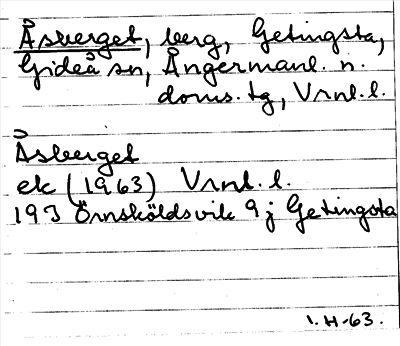 Åsberget, berg, Getingsta,
Gideå sn, Ångermanl. n.
doms. tg, Vrnl. l.
Åsberget
ek (1963) Vrnl. l.
193 Örnsköldsvik 9j Getingsta
1. H-63.